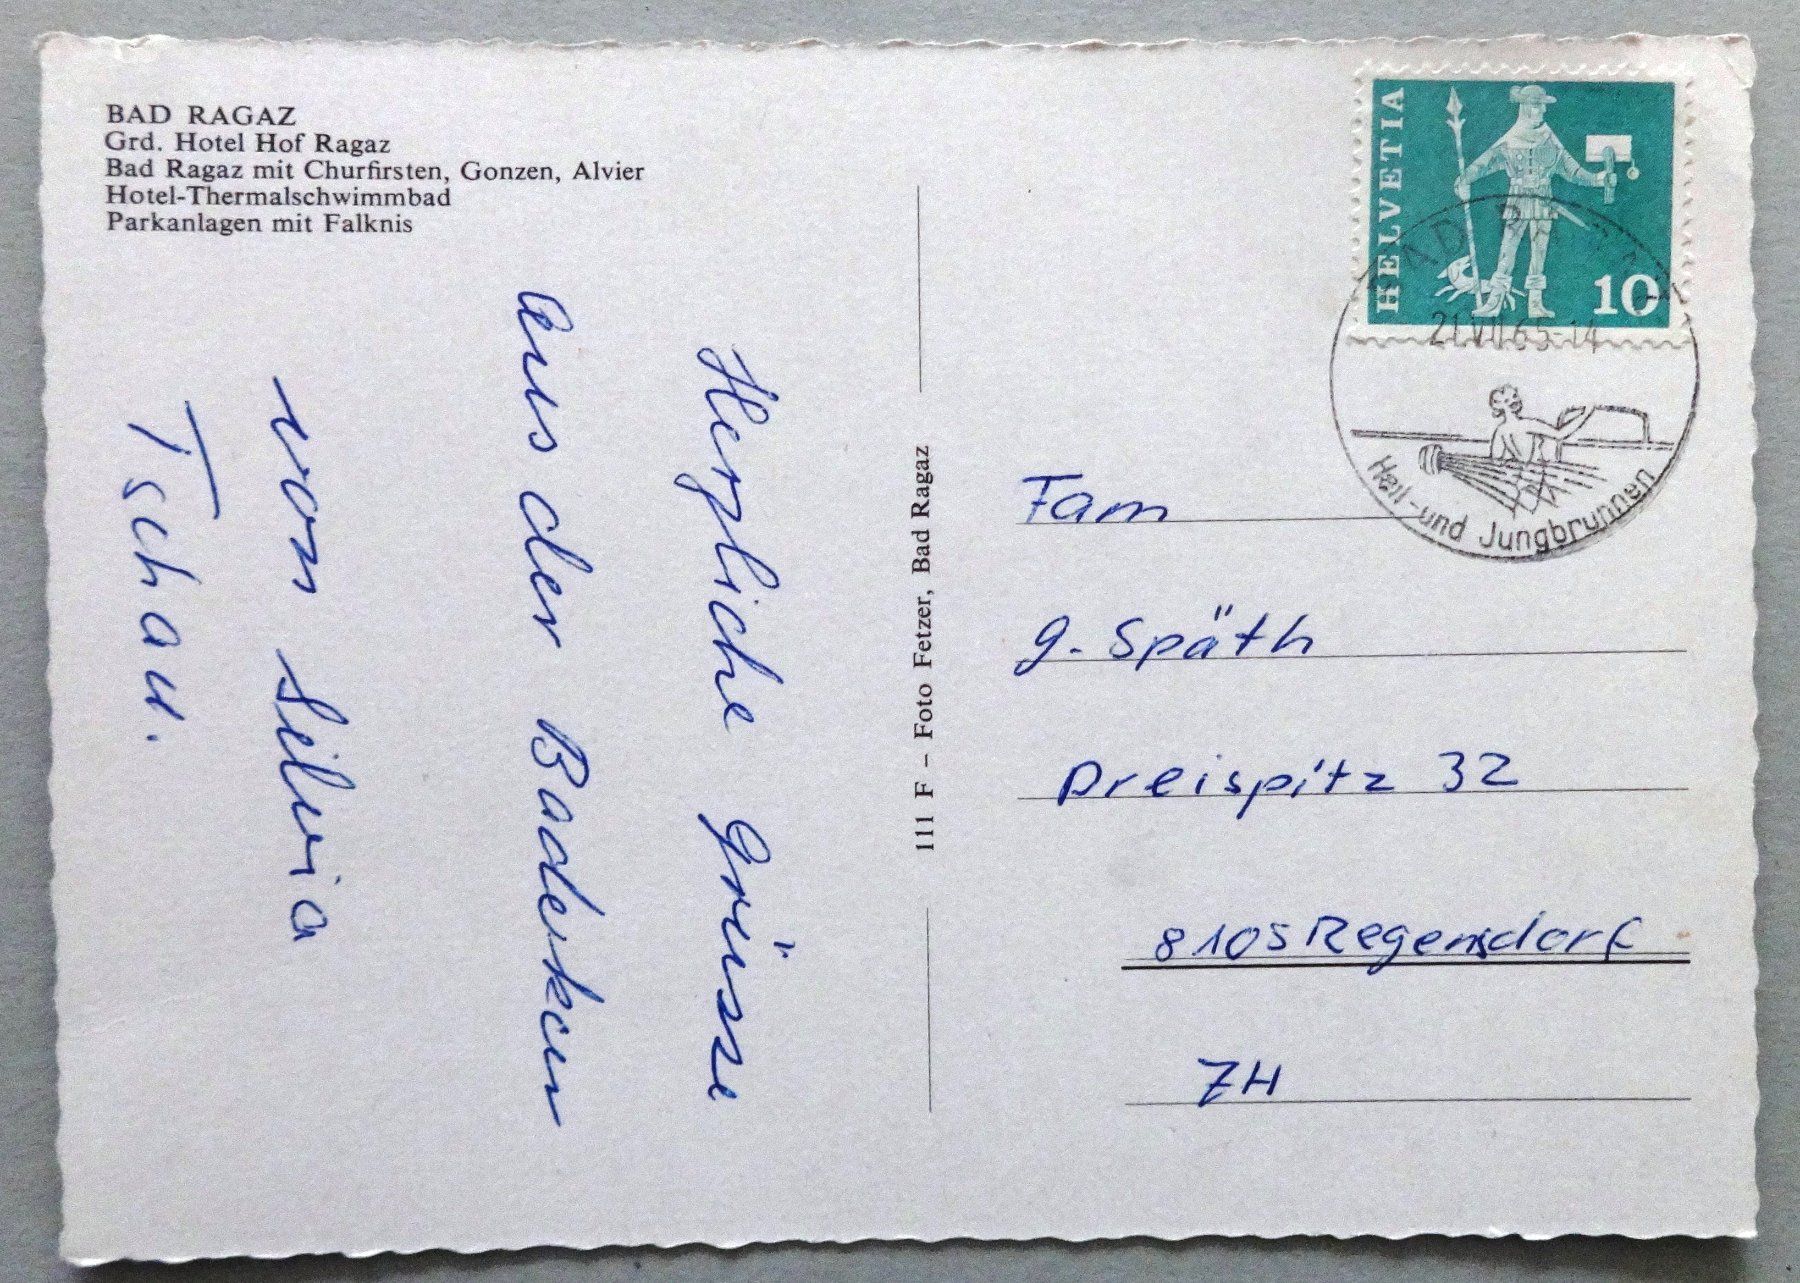 BAD RAGAZ
Grd. Hotel Hof Ragaz
Bad Ragaz mit Churfirsten, Gonzen, Alvier
Hotel-Thermalschwimmbad
Parkanlagen mit Falknis
Herzliche Grüsse
aus der Baderkur
von Silvia
Tschau.
111 F – Foto Fetzer, Bad Ragaz
HELVETIA
10
BAD RAGAZ
21.VII.65-14
Heil- und Jungbrunnen
Fam
G. Späth
Dreispitz 32
8105 Regensdorf
ZH